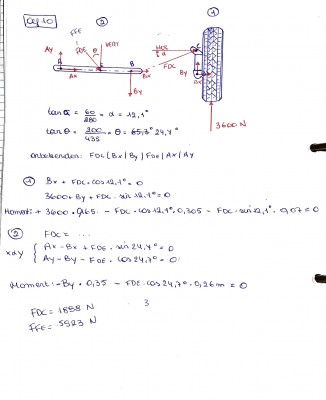 Oef 10
②
①
FFE
Ay
FDE
θ
VERT
C
A
B
Ax
Bx
By
FDC
α
C
By
Bx
3600 N
tan α = 60/280 = α = 12,1°
tan θ = 200/435 = θ = 24,7°
onbekenden: FDC | Bx | By | FDE | Ax | Ay
① Bx + FDC . cos 12,1° = 0
3600 + By + FDC . sin 12,1° = 0
Moment: + 3600 . - FDC . cos 12,1° . 0,305 - FDC . sin 12,1° . 0,07 = 0
② FDC = ...
x Ax - Bx + FDE . sin 24,7° = 0
y Ay - By - FDE . cos 24,7° = 0
Moment: - By . 0,35 - FDE . cos 24,7° . 0,26 m = 0
FDC = 1888 N
3
FFE = 5923 N